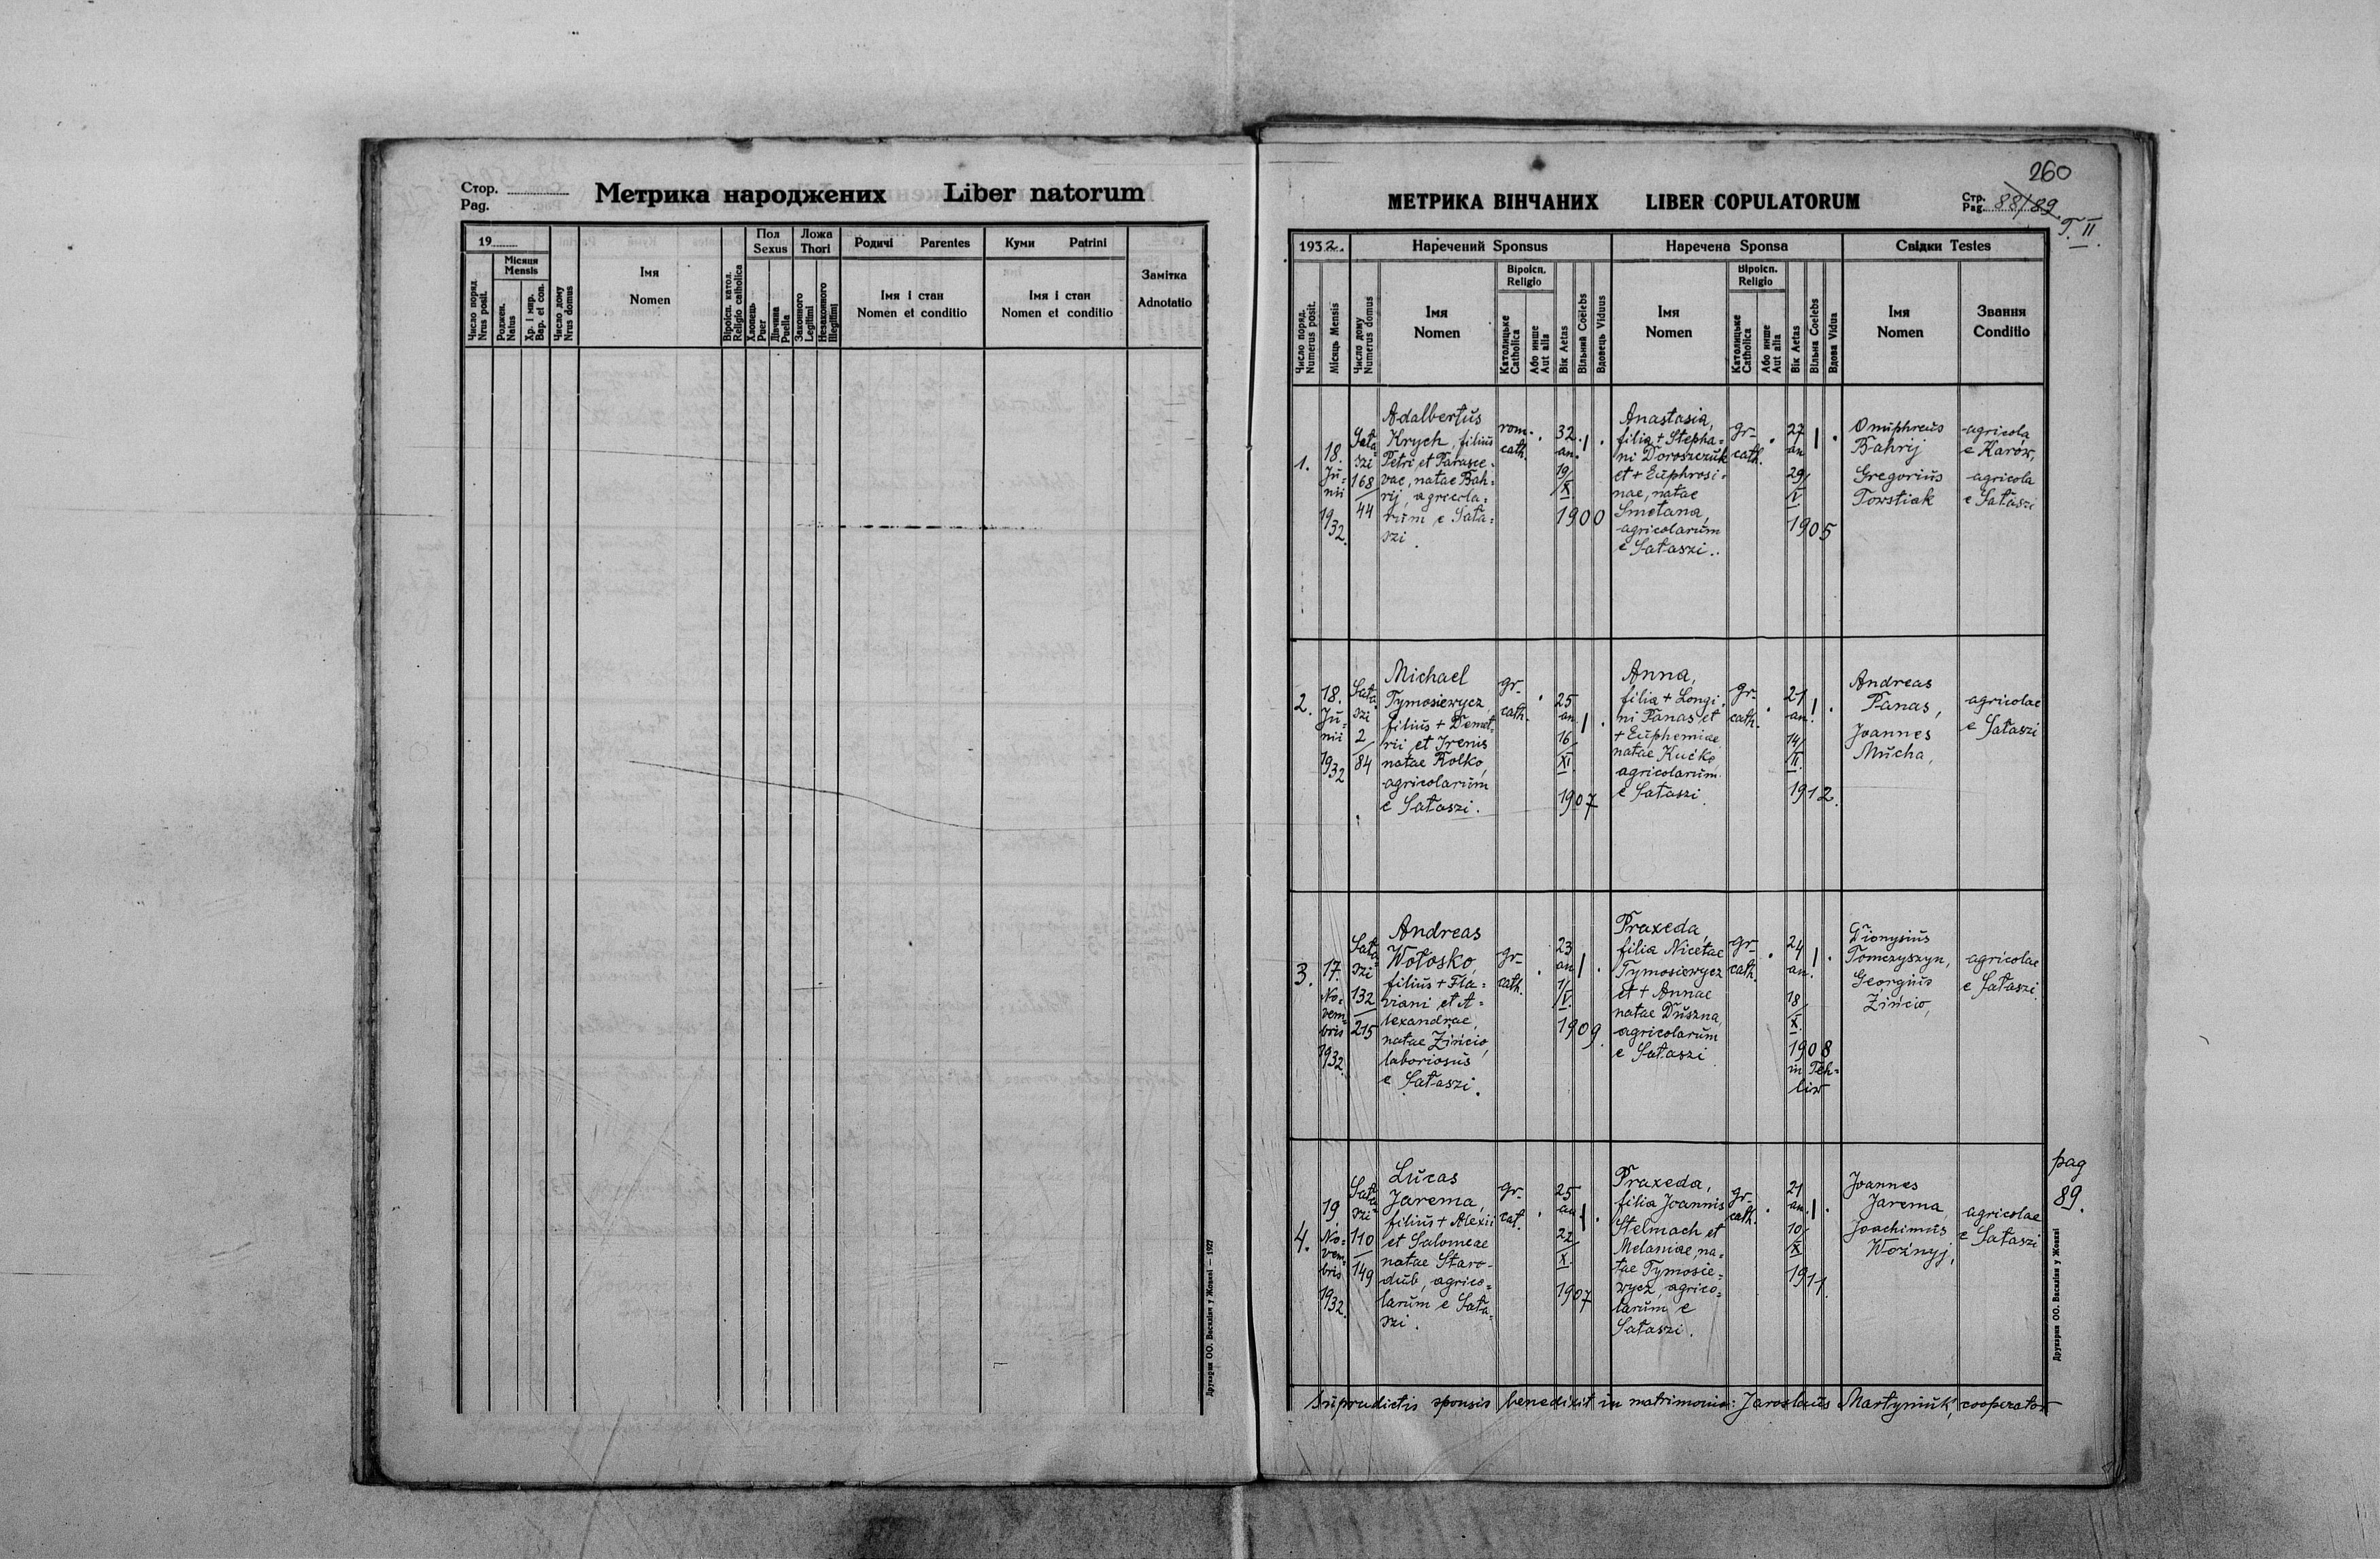 Стор.
Pag.
Метрика народжених Liber natorum
19
Число поряд.
Nrus posit.
Місяця
Mensis
Роджен.
Natus
Хр. і мир.
Bap. et con.
Число дому
Nrus domus
Імя
Nomen
Віроісп. катол.
Religio catholica
Пол
Sexus
Хлопець
Puer
Дівчина
Puella
Ложа
Thori
Законного
Legitimi
Незаконного
Illegitimi
Родичі Parentes
Імя і стан
Nomen et conditio
Куми Patrini
Імя і стан
Nomen et conditio
Замітка
Adnotatio
Друкарня ОО. Василіян у Жовкві — 1927
260
МЕТРИКА ВІНЧАНИХ LIBER COPULATORUM
Стр.
Pag. 88/89
T. II.
1932.
Наречений Sponsus
Наречена Sponsa
Свідки Testes
Число поряд.
Numerus posit.
Місяць Mensis
Число дому
Numerus domus
Імя
Nomen
Віроісп.
Religio
Католицьке
Catholica
Або инше
Aut alia
Вік Aetas
Вільний Coelebs
Вдовець Viduus
Імя
Nomen
Віроісп.
Religio
Католицьке
Catholica
Або инше
Aut alia
Вік Aetas
Вільна Coelebs
Вдова Vidua
Імя
Nomen
Звання
Conditio
1.
18.
Ju=
nii
1932.
Sała=
szi
168
44
Adalbertus
Krych, filius
Petri et Parasce=
vae, natae Bah=
rij, agricola=
rum e Sała=
szi.
rom.
cath.
32
an.
19/
X
1900
Anastasia,
filia + Stepha=
ni Doroszczuk
et + Euphrosi=
nae, natae
Smetana,
agricolarum
e Sałaszi.
gr.
cath.
27
an
29/
V
1905
Onuphreus
Bahrij
Gregorius
Towstiak
agricola
e Karów,
agricola
e Sałaszi
2.
18.
Ju=
nii
1932
Sała=
szi
2
84
Michael
Tymosiewycz,
filius + Demet=
rii et Irenis
natae Rolko,
agricolarum
e Sałaszi.
gr.
cath.
25
an
16/
XI.
1907
Anna,
filia + Longi=
ni Panas, et
+ Euphemiae
natae Kućko,
agricolarum
e Sałaszi.
gr.
cath.
21
an.
14/
II.
1912.
Andreas
Panas,
Joannes
Mucha,
agricolae
e Sałaszi
3.
17.
No=
vem=
bris
1932.
Sała=
szi
132
215
Andreas
Wołosko,
filius + Fla=
viani et A=
lexandrae,
natae Zińcio,
laboriosus
e Sałaszi.
gr.
cath.
23
an
1/
V.
1909.
Praxeda,
filia Nicetae
Tymosiewycz
et + Annae
natae Duszna,
agricolarum
e Sałaszi
gr.
cath.
24
an.
18/
X.
1908
in Teh=
liw
Dionysius
Tomczyszyn,
Georgius
Zińcio,
agricolae
e Sałaszi.
4.
19.
No=
vem=
bris
1932.
Sała=
szi
110
149
Lucas
Jarema,
filius + Alexii
et Salomeae
natae Staro-
dub, agrico=
larum e Sała=
szi.
gr.
cat.
25
an.
22/
X.
1907
Praxeda,
filia Joannis
Stelmach et
Melaniae, na=
tae Tymosie=
wycz, agrico=
larum e
Sałaszi.
gr.
cath.
21
an.
10/
X
1911.
Joannes
Jarema,
Joachimus
Woźnyj,
agricolae
e Sałaszi
pag
89.
Supradictis sponsis benedixit in matrimonio: Jaroslaus Martyniuk, cooperator
Друкарня ОО. Василіян у Жовкві